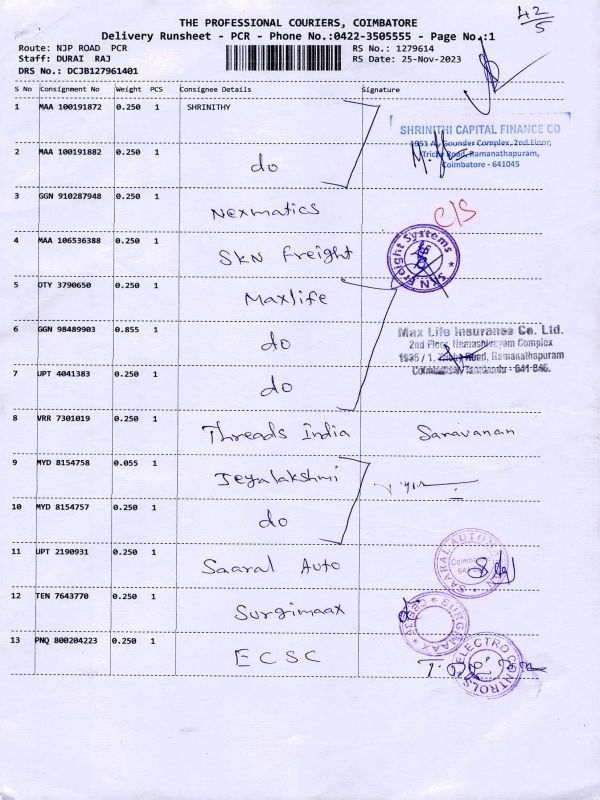 THE PROFESSIONAL COURIERS, COIMBATORE
42/5
Delivery Runsheet - PCR - Phone No.:0422-3505555 - Page No.:1
Route: NJP ROAD PCR
RS No.: 1279614
Staff: DURAI RAJ
RS Date: 25-Nov-2023
DRS No.: DCJB127961401
S No Consignment No Weight PCS Consignee Details Signature
1 MAA 100191872 0.250 1 SHRINITHY
SHRINITHI CAPITAL FINANCE CO
1951 A, Gounder Complex, 2nd Floor,
Trichy Road, Ramanathapuram,
Coimbatore - 641045
2 MAA 100191882 0.250 1 do
3 GGN 910287948 0.250 1 Nexmatics C/S
4 MAA 106536388 0.250 1 SKN Freight
SKN Freight Systems
5 OTY 3790650 0.250 1 Maxlife
6 GGN 98489903 0.855 1 do
Max Life Insurance Co. Ltd.
2nd Floor, Complex
Road, Ramanathapuram
7 UPT 4041383 0.250 1 do
8 VRR 7301019 0.250 1 Threads India Saravanan
9 MYD 8154758 0.055 1 Jeyalakshmi
10 MYD 8154757 0.250 1 do
11 UPT 2190931 0.250 1 Saaral Auto
SAARAL AUTO
12 TEN 7643770 0.250 1 Surgimaax
SURGIMAAX
13 PNQ 800204223 0.250 1 ECSC
ELECTRO CONTROLS